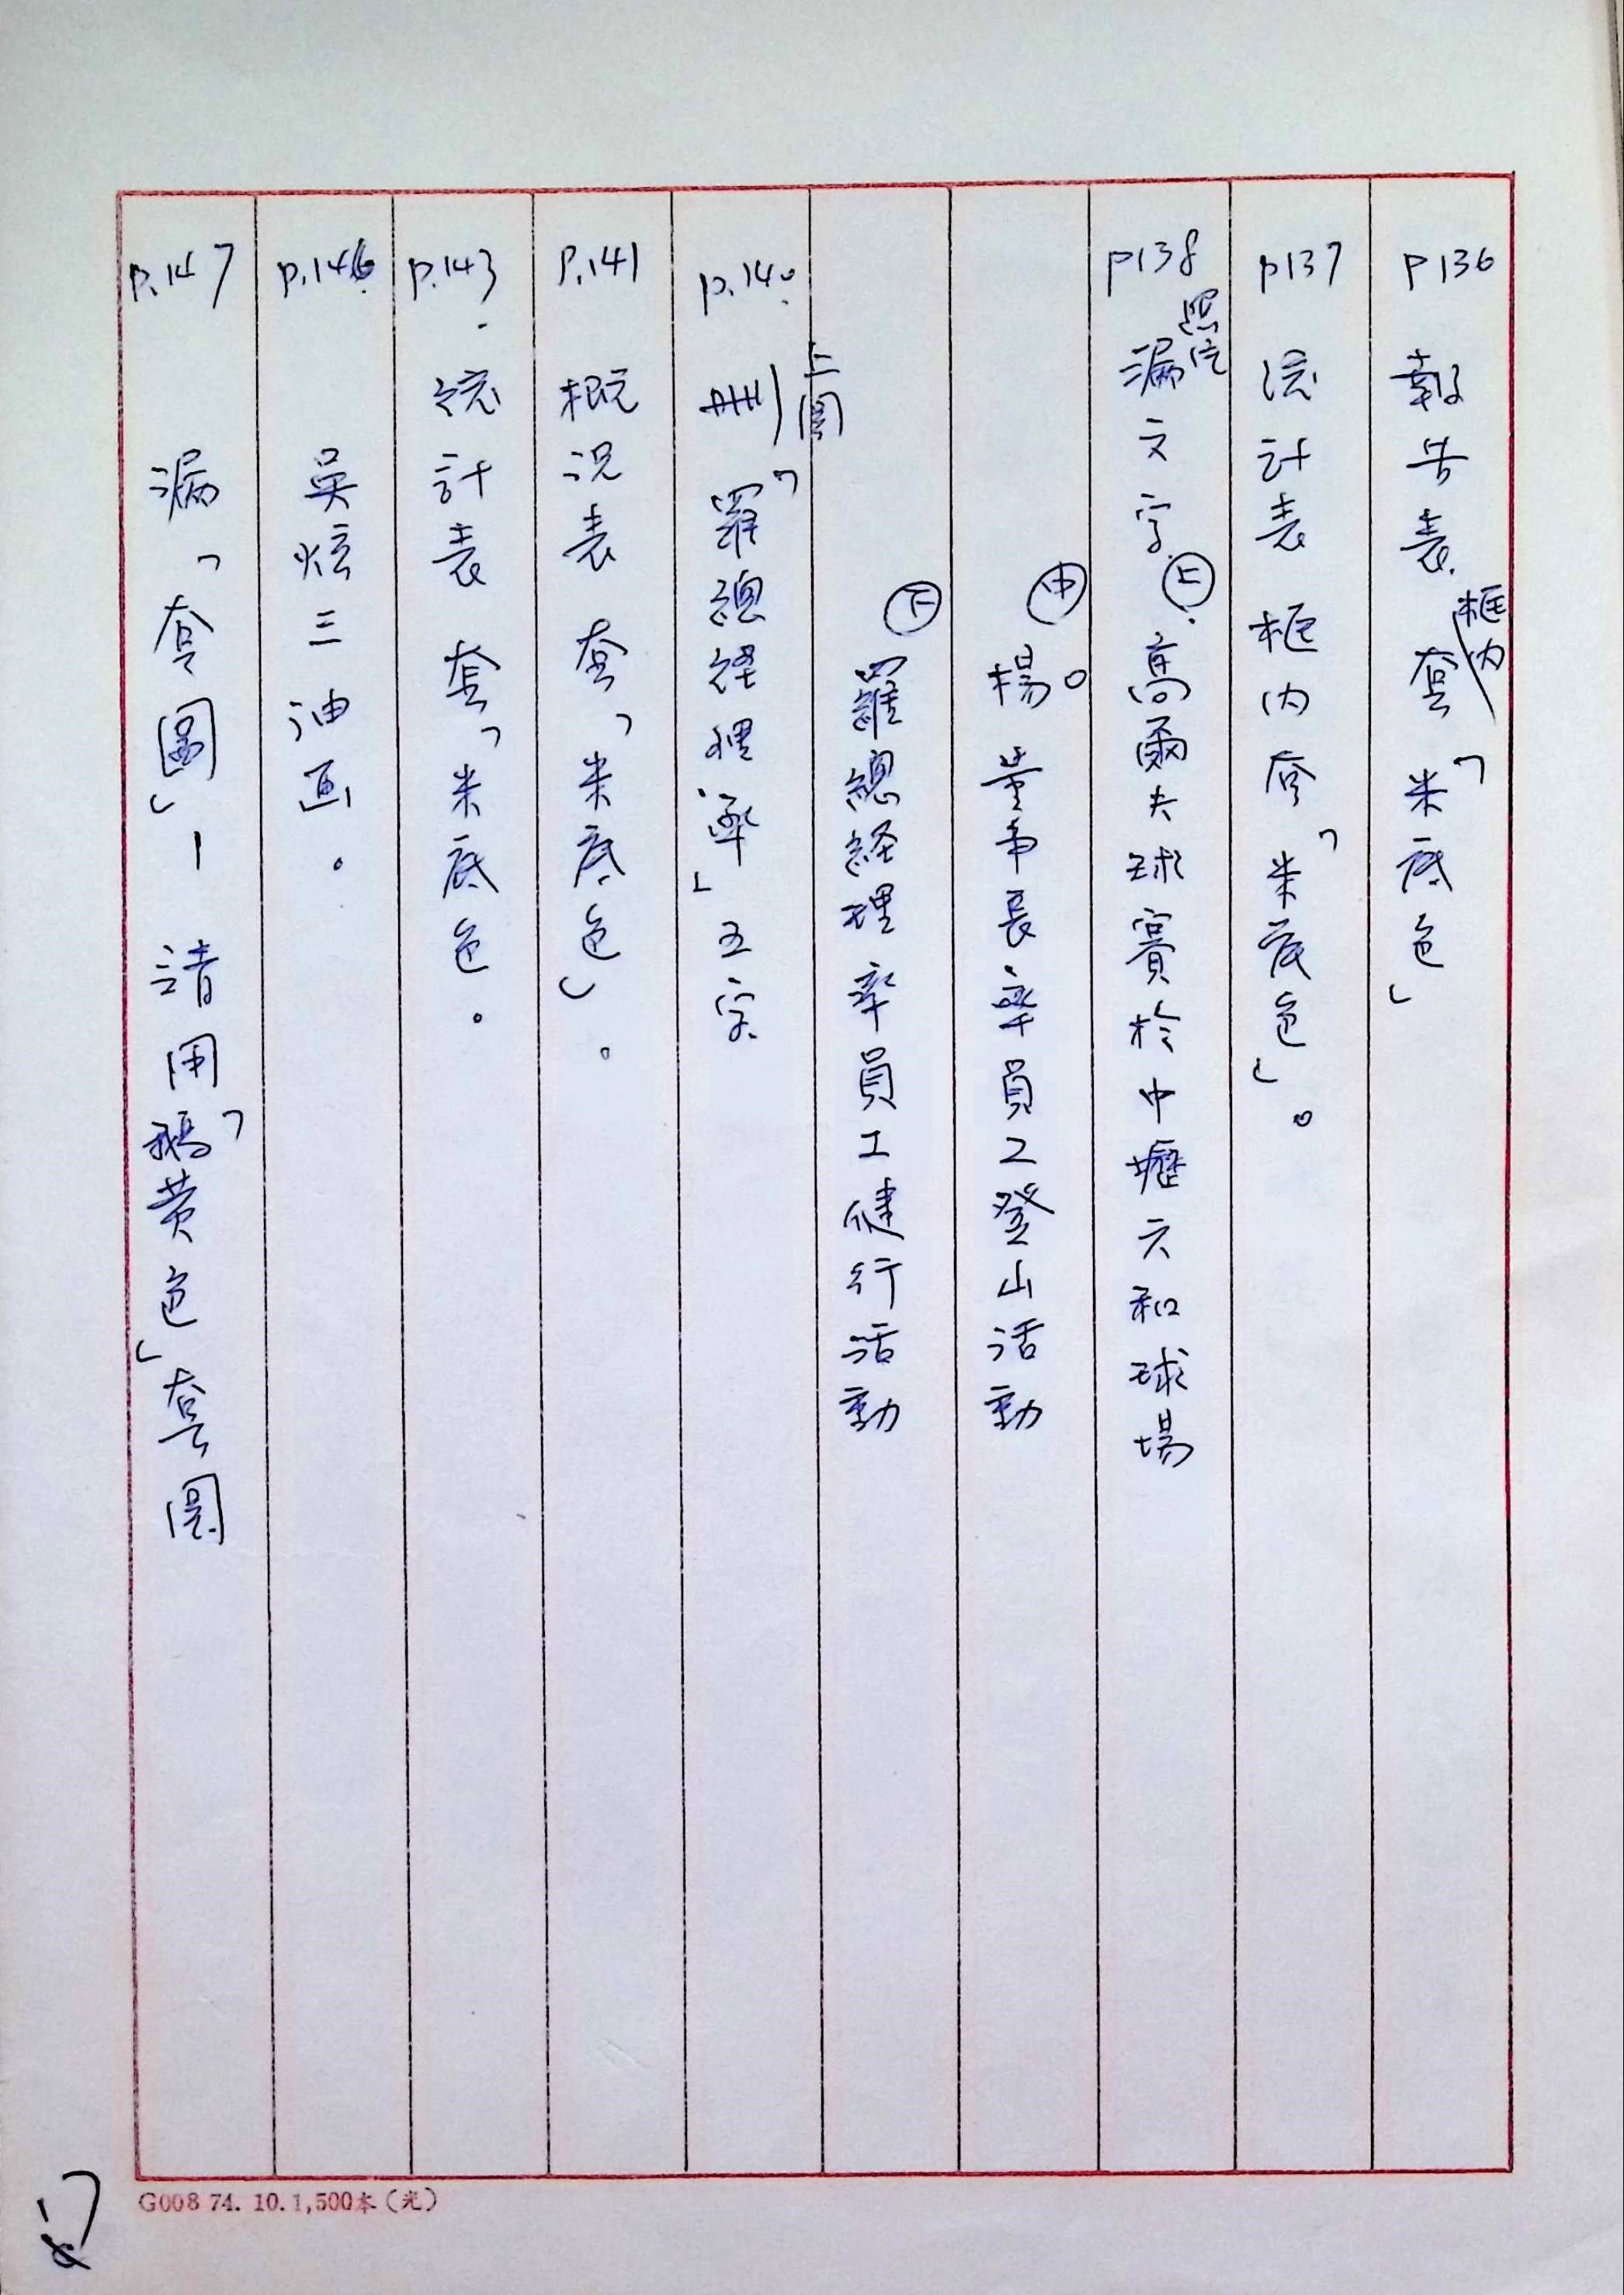 P136 報告表.框內套「米底色」
P137 統計表 框內套「米底色」。
P138 照片漏文字.上.高爾夫球賽於中壢六和球場
中 楊。董事長率員工登山活動
下 羅總経理率員工健行活動
P.140. 上圖刪「羅總経理率」五字.
P.141 概況表 套「米底色」。
P.143. 統計表 套「米底色。
P.146. 吳炫三油画。
P.147 漏「套圖」— 請用「鵝黄色」套圖
G008 74. 10. 1,500本 (光)